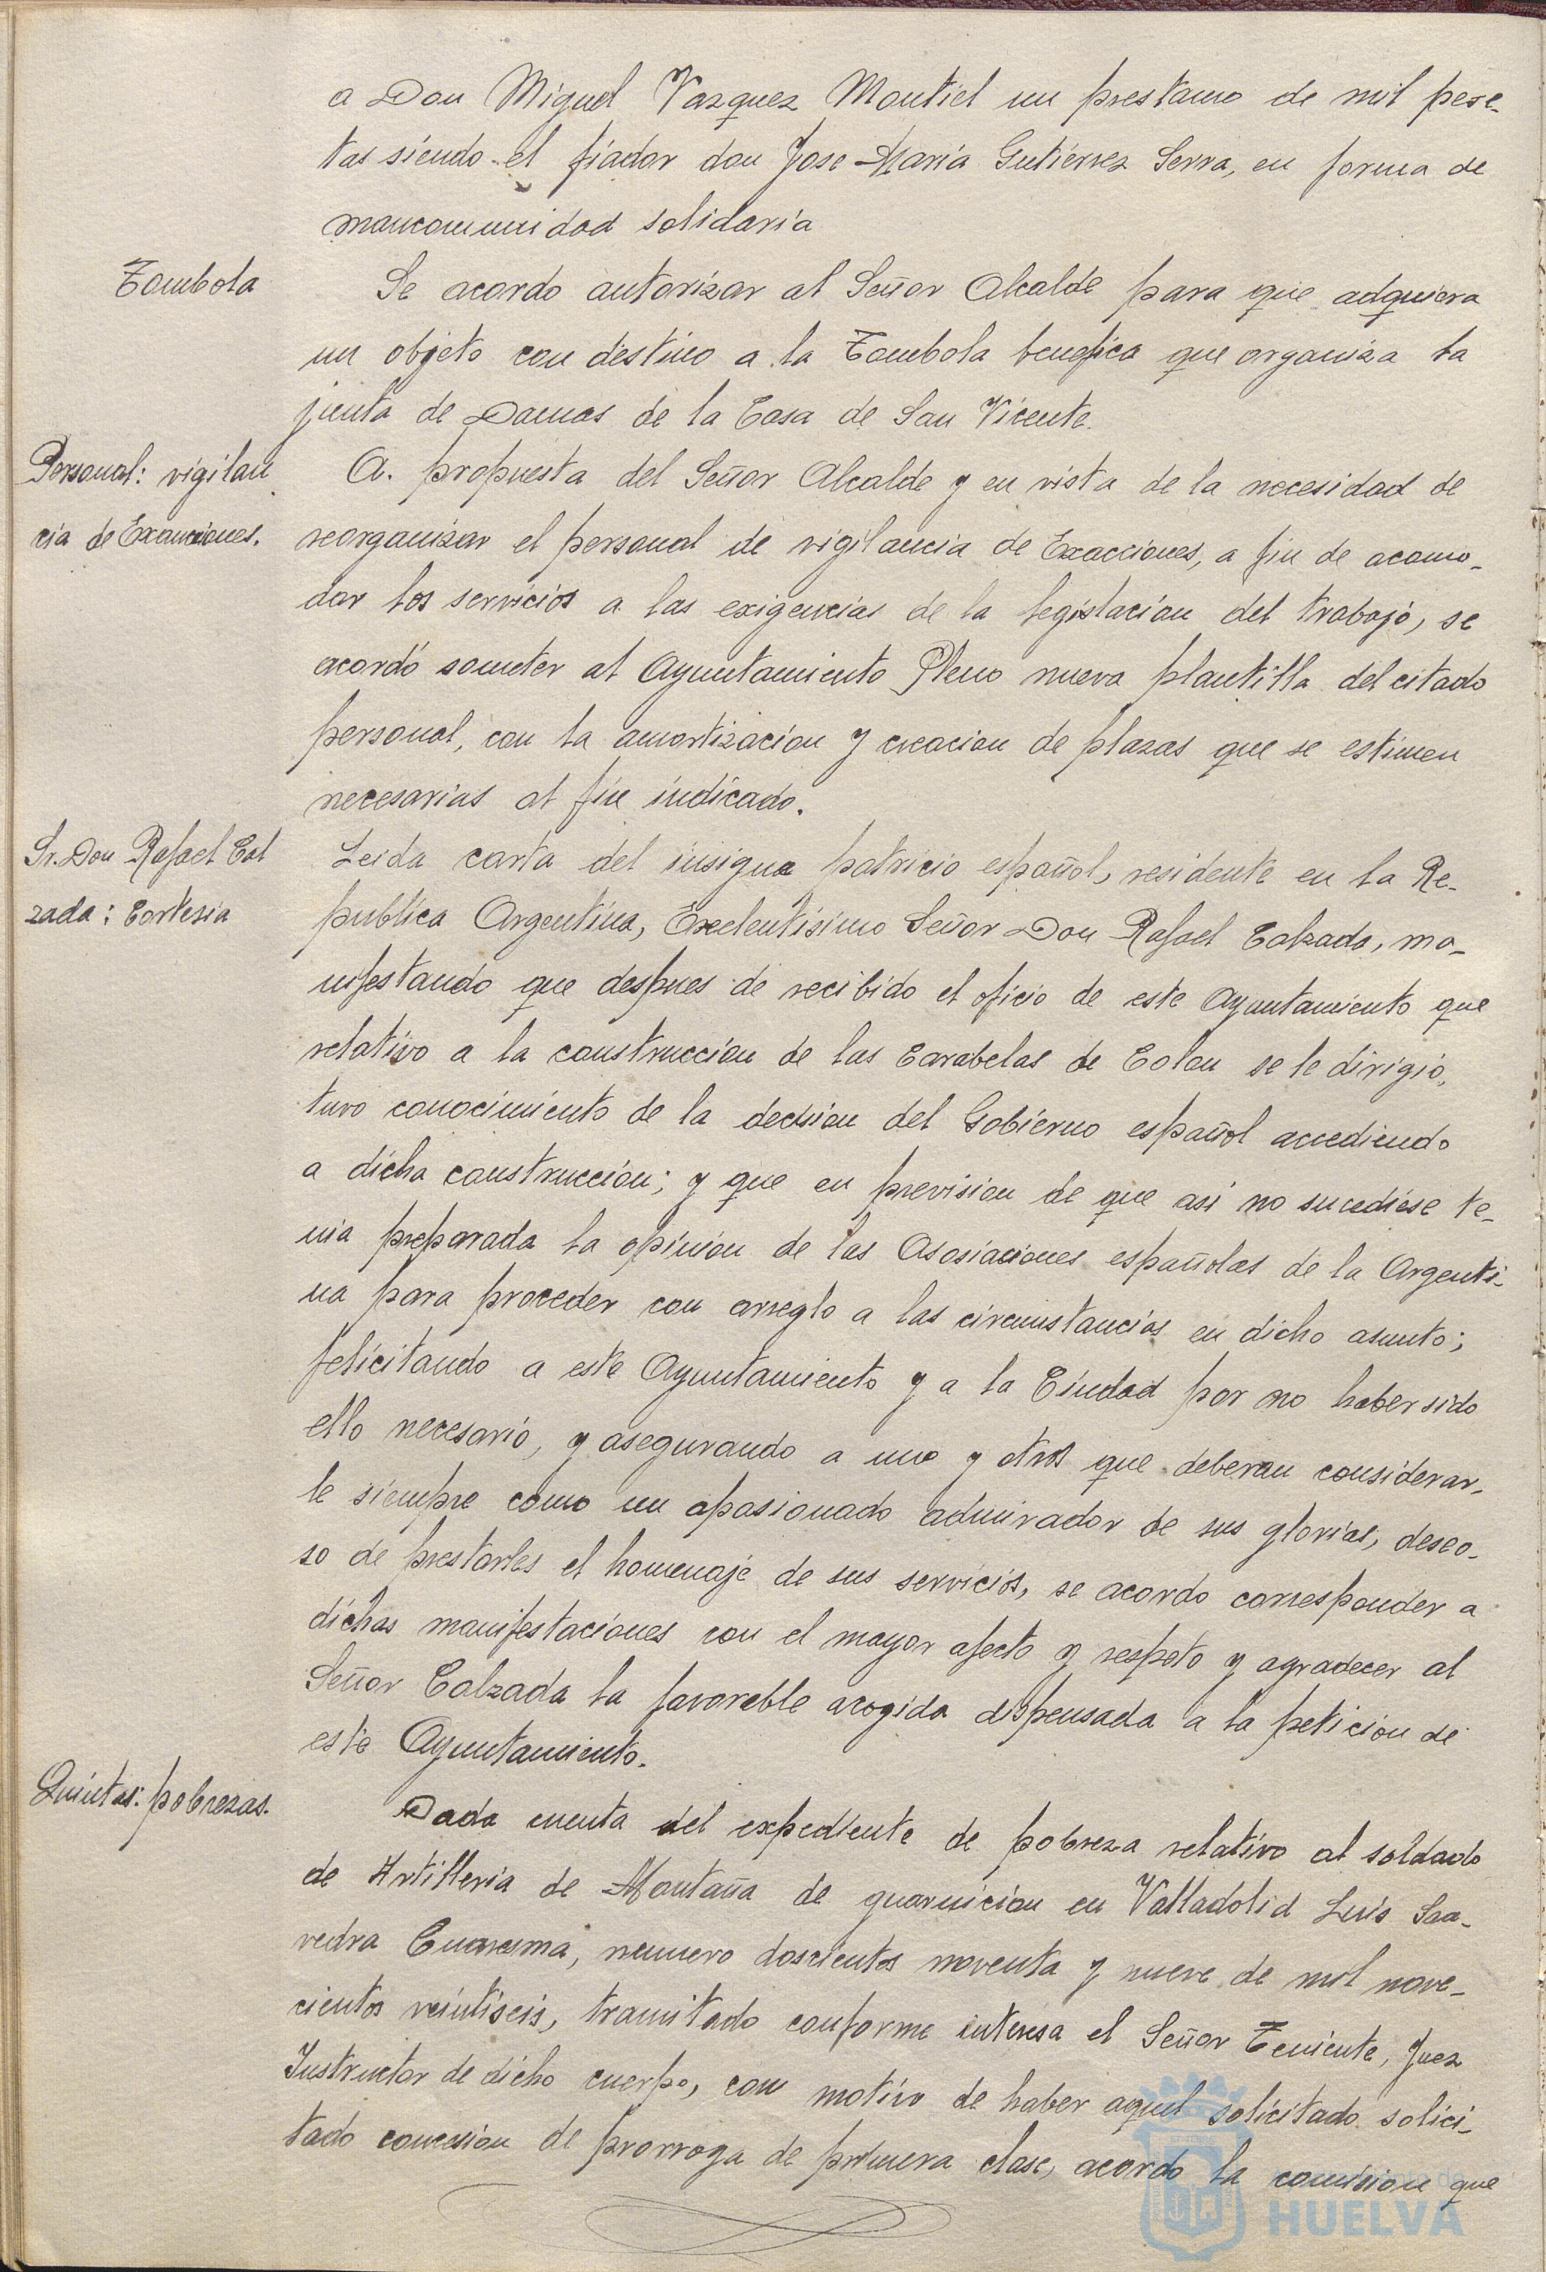 a Don Miguel Vazquez Montiel un prestamo de mil pese-
tas siendo el fiador don Jose Maria Gutiérrez Serra, en forma de
mancomunidad solidaria
Tombola
Se acordo autorizar al Señor Alcalde para que adquiera
un objeto con destino a la Tombola benefica que organiza la
junta de Damas de la Casa de San Vicente.
Personal: vigilan
cia de Exacciones.
A. propuesta del Señor Alcalde y en vista de la necesidad de
reorganizar el personal de vigilancia de Exacciones, a fin de acomo-
dar los servicios a las exigencias de la legislacion del trabajo, se
acordó someter al Ayuntamiento Pleno nueva plantilla del citado
personal, con la amortizacion y creacion de plazas que se estimen
necesarias al fin indicado.
Sr. Don Rafael Cal
zada: Cortesia
Leida carta del insigne patricio español, residente en la Re-
publica Argentina, Excelentisimo Señor Don Rafael Calzada, ma-
nifestando que despues de recibido el oficio de este Ayuntamiento que
relativo a la construccion de las Carabelas de Colon se le dirigio,
tuvo conocimiento de la decision del Gobierno español accediendo
a dicha construccion; y que en prevision de que asi no sucediese te-
nia preparada la opinion de las Asosiaciones españolas de la Argenti-
na para proceder con arreglo a las circunstancias en dicho asunto;
felicitando a este Ayuntamiento y a la Ciudad por no haber sido
ello necesario, y asegurando a uno y otros que deberan considerar-
le siempre como un apasionado admirador de sus glorias, deseo-
so de prestarles el homenaje de sus servicios, se acordo corresponder a
dichas manifestaciones con el mayor afecto y respeto y agradecer al
Señor Calzada la favorable acogida dispensada a la peticion de
este Ayuntamiento.
Quintas: pobrezas.
Dada cuenta del expediente de pobreza relativo al soldado
de Artilleria de Montaña de guarnicion en Valladolid Luis Saa-
vedra Cuaresma, numero doscientos noventa y nueve de mil nove-
cientos veintiseis, tramitado conforme interesa el Señor Teniente, Juez
Instructor de dicho cuerpo, con motivo de haber aquel solicitado solici-
tado concesion de prorroga de primera clase, acordo la comision que
HUELVA